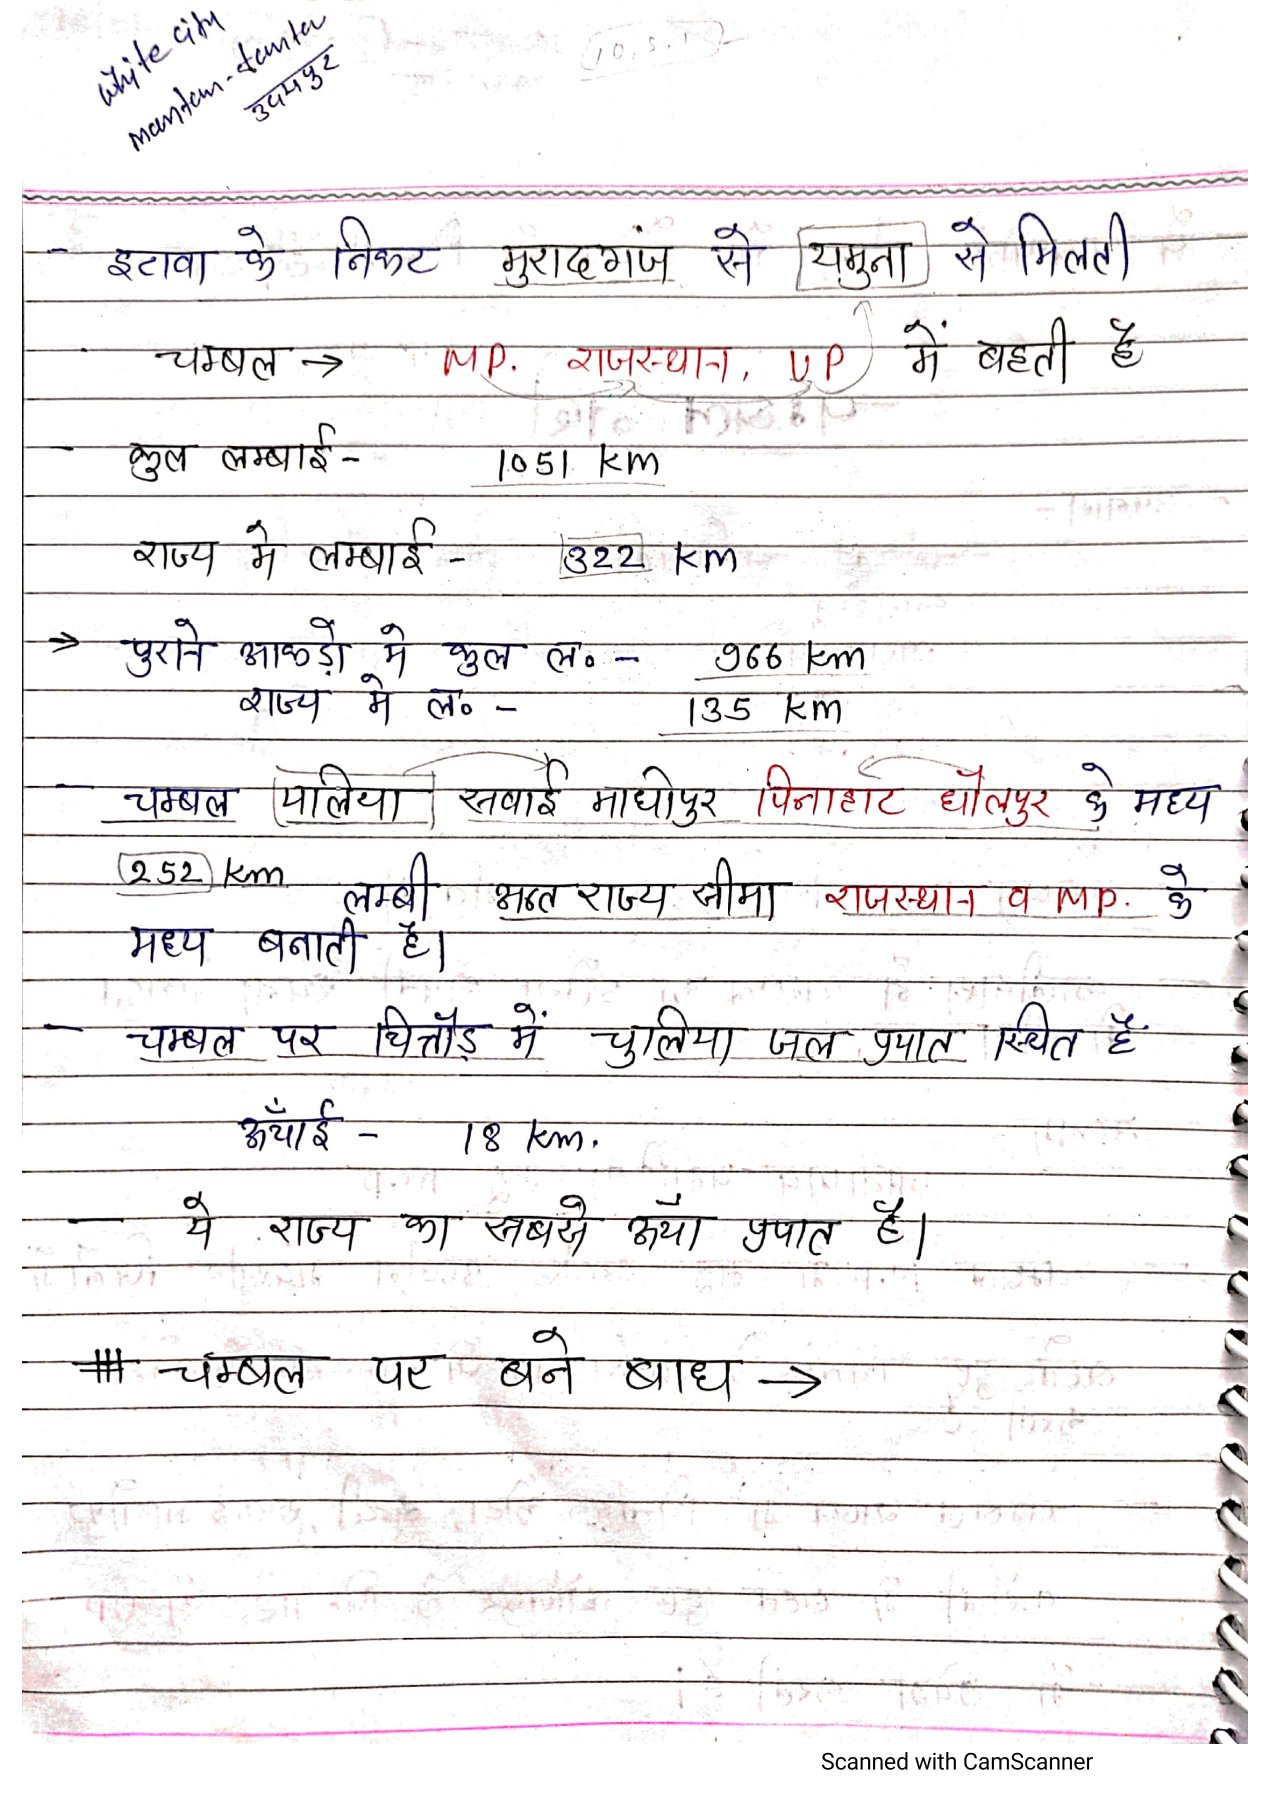 White city
mantan-tanta
उदयपुर
- इटावा के निकट मुरादगंज से यमुना से मिलती
चम्बल → MP. राजस्थान, UP में बहती है
- कुल लम्बाई - 1051 KM
राज्य मे लम्बाई - 322 KM
→ पुराने आकड़ो मे कुल ल० - 966 KM
राज्य मे ल० - 135 KM
- चम्बल पालिया सवाई माधोपुर पिनाहाट धौलपुर के मध्य
252 KM लम्बी अन्त राज्य सीमा राजस्थान व MP. के
मध्य बनाती है।
- चम्बल पर चित्तौड़ में चुलिया जल प्रपात स्थित है
ऊँचाई - 18 KM.
- ये राज्य का सबसे ऊँचा प्रपात है।
# चम्बल पर बने बाध →
Scanned with CamScanner